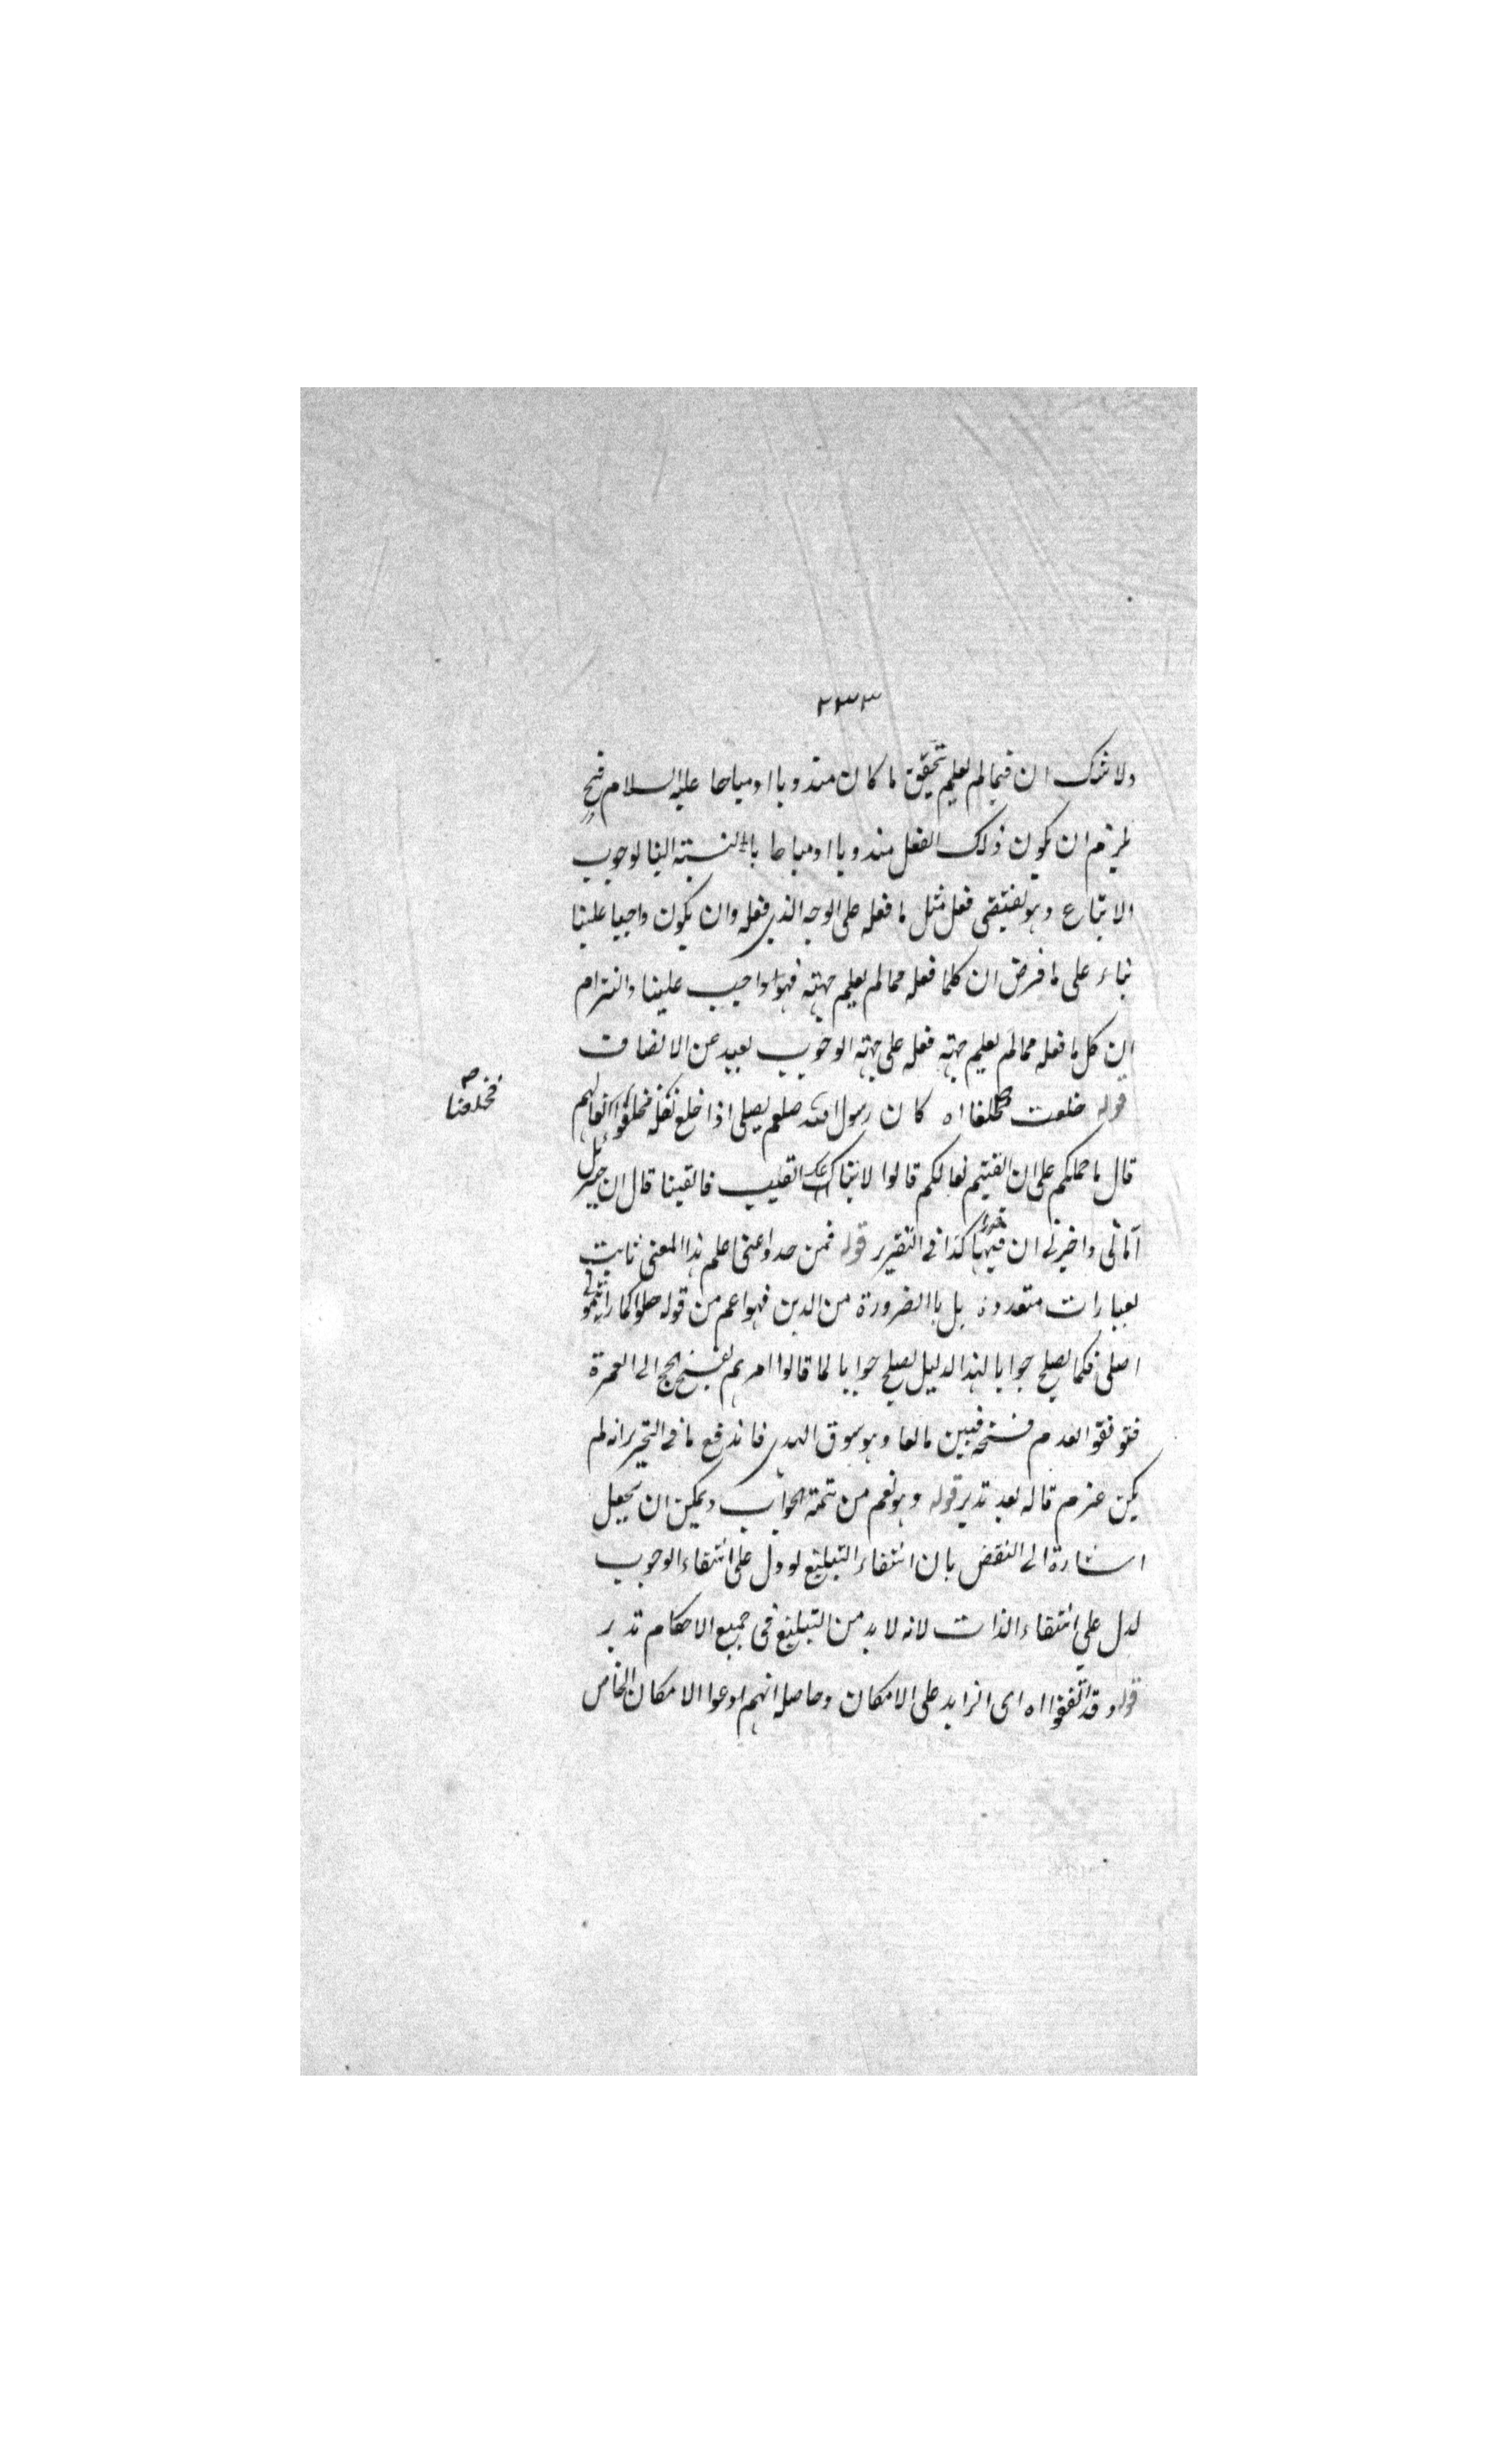 ٢٣٣
ولا شك ان فيما لم يعلم تحقيق ما كان مندوبا او مباحا عليه السلام فح
يلزم ان يكون ذلك الفعل مندوبا او مباحا بالنسبة الينا لوجوب
الاتباع وهو يقتضى فعل مثل ما فعله على الوجه الذى فعله وان يكون واجبا علينا
بناء على ما فرض ان كلما فعله مما لم يعلم جهته فهو واجب علينا والتزام
ان كل ما فعله مما لم يعلم جهته فعله على جهة الوجوب بعيد عن الانصاف
قوله خلعت اه كان رسول الله صلعم يصلى اذا خلع نعله فخلعوا نعالهم
فخلعنا صح
قال ما حملكم على ان القيتم نعالكم قالوا لاتباعك القيت فالقينا قال ان جبرئيل
اتانى واخبرنى ان فيهما كذا فى التقرير قوله فمن خذوا عنى اعلم هذا المعنى ثابت
بعبارات متعددة بل بالضرورة من الدين فهو اعم من قوله صلوا كما رأيتمونى
اصلى فكما يصلح جوابا لهذا الدليل يصلح جوابا لما قالوا امرهم بفسخ الحج الى العمرة
فتوقفوا لعدم فسخه فبين مانعا وهو سوق الهدى فاندفع ما فى التحرير انه لم
يكن عزم قاله بعد تدبر قوله وهو نعم من تتمة الجواب ويمكن ان يجعل
اشارة الى النقض بان انتفاء التبليغ لو دل على انتفاء الوجوب
لدل على انتفاء الذات لانه لا بد من التبليغ فى جميع الاحكام تدبر
قوله وقد اتفقوا اه اى الزايد على الامكان وحاصله انهم ادعوا الامكان الخاص